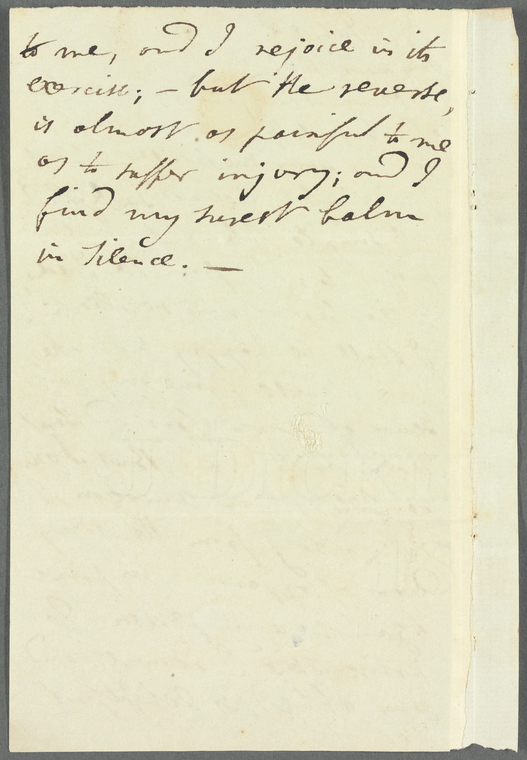 to me, and I rejoice in its
exercise; – but the reverse,
is almost as painful to me
as to suffer injury; and I
find my surest balm
in silence. —